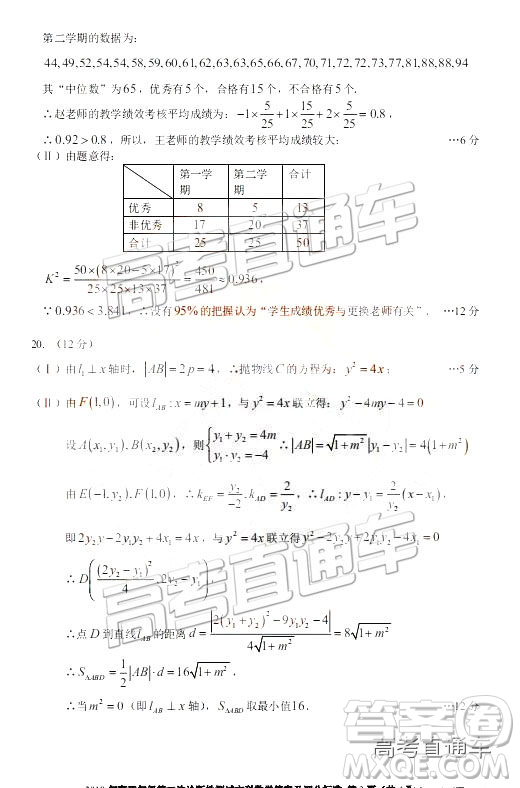 第二学期的数据为:
44,49,52,54,54,58,59,60,61,62,63,63,65,66,67,70,71,72,72,73,77,81,88,88,94
其“中位数”为65，优秀有5个，合格有15个，不合格有5个.
∴赵老师的教学绩效考核平均成绩为: −1×5/25+1×15/25+2×5/25=0.8，
∴0.92>0.8，所以，王老师的教学绩效考核平均成绩较大; …6分
(Ⅱ) 由题意得:
第一学期 第二学期 合计
优秀 8 5 13
非优秀 17 20 37
合计 25 25 50
K²=50×(8×20−5×17)²/(25×25×13×37)=450/481≈0.936，
∵0.936<3.841，∴没有95%的把握认为“学生成绩优秀与更换老师有关”. …12分
20. (12分)
(Ⅰ)由l₁⊥x轴时，|AB|=2p=4，∴抛物线C的方程为: y²=4x; …5分
(Ⅱ)由F(1,0)，可设l_AB:x=my+1，与y²=4x联立得: y²−4my−4=0
设A(x₁,y₁),B(x₂,y₂)，则{y₁+y₂=4m y₁·y₂=−4 ∴|AB|=√(1+m²)|y₁−y₂|=4(1+m²)
由E(−1,y₂),F(1,0)，∴k_EF=y₂/−2，k_AD=2/y₂，∴l_AD:y−y₁=2/y₂(x−x₁)，
即2y₂y−2y₁y₂+4x₁=4x，与y²=4x联立得y²−2y₂y+2y₁y₂−4x₁=0
∴D((2y₂−y₁)²/4,2y₂−y₁)
∴点D到直线l_AB的距离d=|2(y₁+y₂)²−9y₁y₂−4|/(4√(1+m²))=8√(1+m²)
∴S_ΔABD=1/2|AB|·d=16√(1+m²)
∴当m²=0（即l_AB⊥x轴），S_ΔABD取最小值16. …12分
高考直通车
高考直通车
答案圈
高考直通车